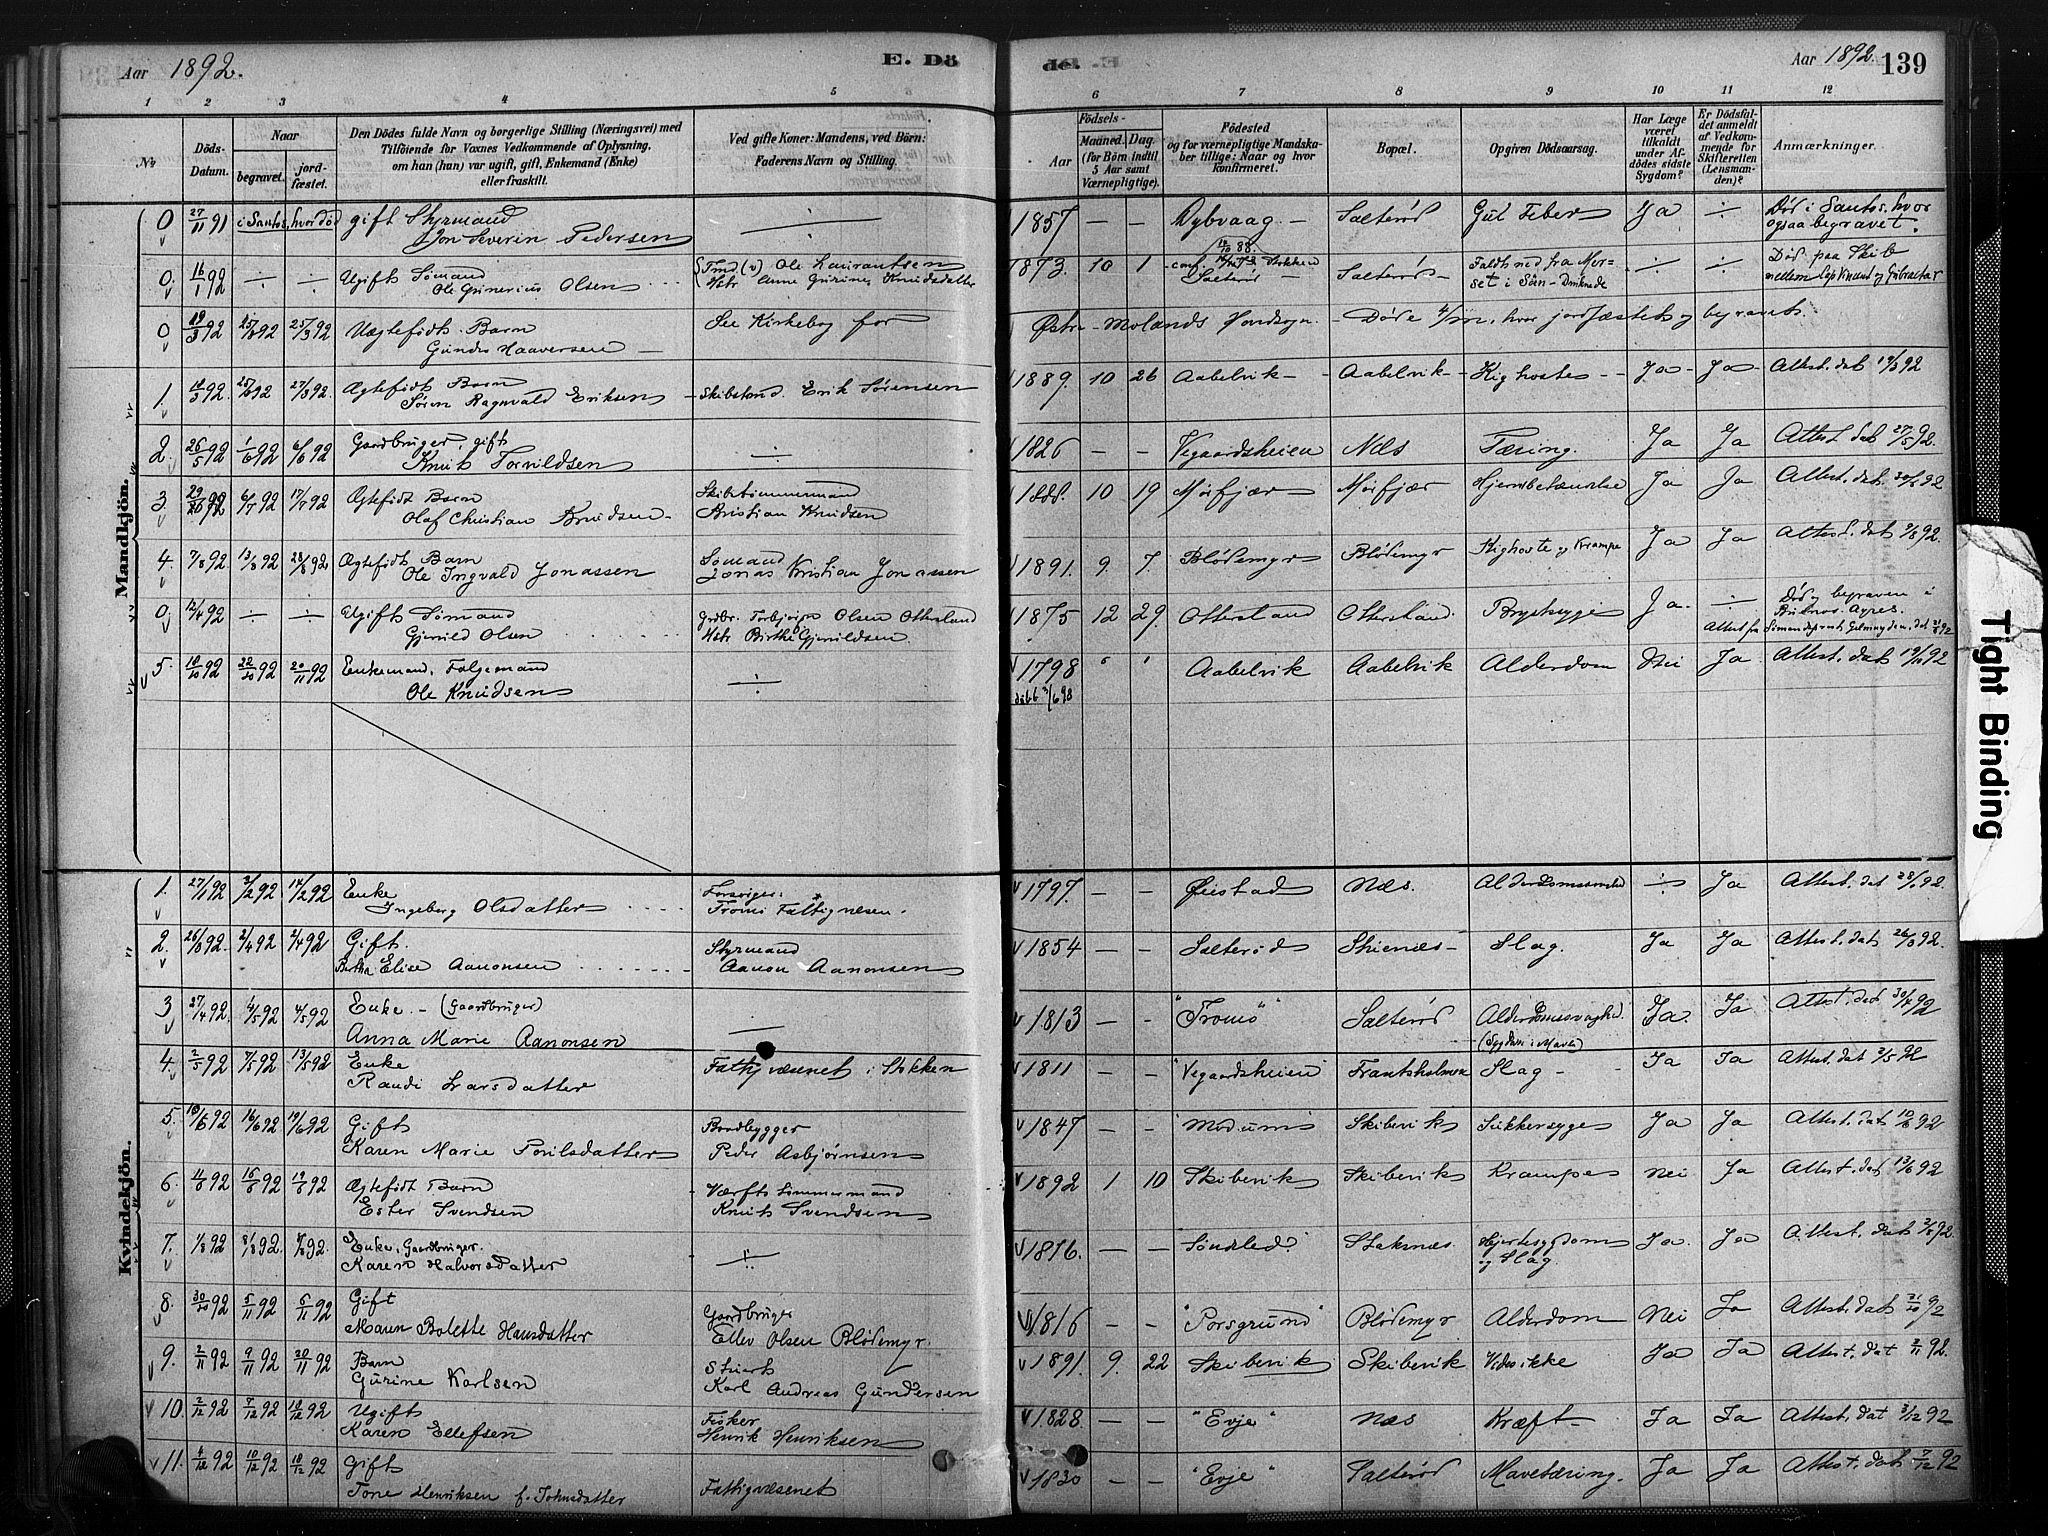 Aar 1892. E. Dö
de. Aar 1892. 139
1 2 3 4 5 6 7 8 9 10 11 12
No.
Döds-
Datum.
Naar
begravet.
jord-
fæstet.
Den Dödes fulde Navn og borgerlige Stilling (Næringsvei) med
Tilföiende for Voxnes Vedkommende af Oplysning,
om han (hun) var ugift, gift, Enkemand (Enke)
eller fraskilt.
Ved gifte Koner: Mandens, ved Börn:
Faderens Navn og Stilling.
Födsels-
Aar
Maaned. Dag.
(for Börn indtil
5 Aar samt
Værnepligtige).
Födested
og for værnepligtige Mandska-
ber tillige: Naar og hvor
konfirmeret.
Bopæl.
Opgiven Dödsaarsag.
Har Læge
været
tilkaldt
under Af-
dödes sidste
Sygdom?
Er Dödsfal-
det anmeldt
af Vedkom-
mende for
Skifteretten
(Lensman-
den)?
Anmærkninger.
Mandkjön.
0 27/11 91 i Santos, hvor død gift Styrmand
Jon Severin Pedersen ÷ 1857 — — Dybvaag — Salterød Gul Feber Ja ÷ Død i Santos, hvor
ogsaa begravet.
0 16/1 92 ÷ ÷ Ugift Sømand
Ole Gunerius Olsen Ole Laurantsen
Anne Gurine Knudsdatter 1873. 10 1 Salterød Salterød Faldt ned fra
set i Søen - Druknede ÷ ÷ Død paa Skib
mellem Cap Vincent og Gibraltar
0 19/3 92 25/3 92 25/3 92 Uægtefødt Barn
Gunder Haaversen See Kirkebog for Østre-Molands Hovedsogn. — hvor jordfæstet og begravet.
1. 18/3 92 25/3 92 27/3 92. Ægtefødt Barn
Søren Ragnvald Eriksen Skibstmd. Erik Sørensen 1889. 10 26 Aabelvik Aabelvik Kighoste Ja Ja Attest. dat 19/3 92
2. 26/5 92 1/6 92 6/6 92 Gaardbruger, gift
Knut Torvildsen ÷ 1826 — — Vegaardsheien Næs Tæring. Ja Ja Attest. dat 27/5 92.
3. 6/7 92 17/7 92 Ægtefødt Barn
Olaf Christian Knudsen Skibstømmermand
Kristian Knudsen 10 19 Mørfjær Mørfjær Hjernebetændelse Ja Ja Attest. dat. 30/6 92
4. 7/8 92 13/8 92 28/8 92 Ægtefødt Barn
Ole Ingvald Jonassen Sømand
Jonas Kristian Jonassen 1891. 9 7 Blødemyr Blødemyr Kighoste og Krampe Ja Ja Attest. dat 9/8 92.
0 12/4 92 ÷ ÷ Ugift Sømand
Gjeruld Olsen Grdbr. Torbjørn Olsen Ottersland
Hstr Birthe Gjeruldsen 1875 12 29 Otterstand Otterstand Brystsyge Ja ÷ Død og begraven i
Buenos Ayres.
5. 18/10 92 22/10 92 20/11 92 Enkemand, Folgemand
Ole Knudsen ÷ 1798
døbt 3/6 98 Aabelvik Aabelvik Alderdom Nei Ja Attest. dat 19/10 92
Kvindekjön.
1. 27/1 92 2/2 92 14/2 92 Enke
Ingeborg Olsdatter Forsørges:
Tromø Fattigvæsen. 1797 — — Øiestad Næs. Alderdomssvaghed ÷ Ja Attest. dat 28/1 92.
2. 26/3 92. 2/4 92 2/4 92 Gift.
Birtha Elise Aanonsen Styrmand
Aanon Aanonsen 1854 — — Salterød Skienæs Slag. Ja Ja Attest. dat 26/3 92.
3 27/4 92. 4/5 92 4/5 92 Enke — (Gaardbruger)
Anna Marie Aanonsen — 1813 — — "Tromø" Salterød Alderdomssvaghed.
(Sygdom i Maven) Ja. Ja Attest. dat 30/4 92
4. 2/5 92 7/5 92 13/5 92 Enke
Randi Larsdatter Fattigvæsenet i Stokken 1811 — — "Vegaardsheien" Frantsholmen Slag — Ja Ja Attest. dat 3/5 92
5. 10/6 92 16/6 92 19/6 92 Gift
Karen Marie Poulsdatter Baadbygger
Peder Asbjørnsen 1847 — — "Modum" Skiberik Sukkersyge Ja Ja Attest. dat 10/6 92
6. 11/6 92 16/6 92 19/6 92 Ægtefødt Barn
Ester Svendsen Værftstømmermand
Knut Svendsen 1892 1 10 Skiberik Skiberik Krampe Nei Ja Attest. dat 13/6 92
7. 1/8 92 8/8 92. 8/8 92. Enke, Gaardbruger.
Karen Halvorsdatter ÷ 1816. — — Søndeled. Staknæs Hjertesygdom
og Slag. Ja. Ja Attest. dat 2/8 92
8. 30/10 92 5/11 92 6/11 92 Gift
Maren Bolette Hansdatter Gaardbruger
Ellev Olsen Blødemyr. 1816 — — "Porsgrund" Blødemyr Alderdom Nei Ja Attest. dat 31/10 92
9. 2/11 92 9/11 92 20/11 92 Barn
Gurine Karlsen Stuert
Karl Andreas Gundersen 1891. 9. 22 Skiberik Skiberik Ja Ja Attest. dat 2/11 92.
10. 2/12 92 7/12 92 18/12 92 Ugift
Karen Ellefsen Fisker
Henrik Henriksen 1828 — — "Evje" Næs Kræft — Ja Ja Attest. dat 3/12 92
11. 4/12 92 10/12 92 18/12 92 Gift
Tone Henriksen f. Johnsdatter Fattigvæsenet 1830 — — "Evje" Salterød Mavetæring. Ja Ja Attest. dat 7/12 92
Tight Binding